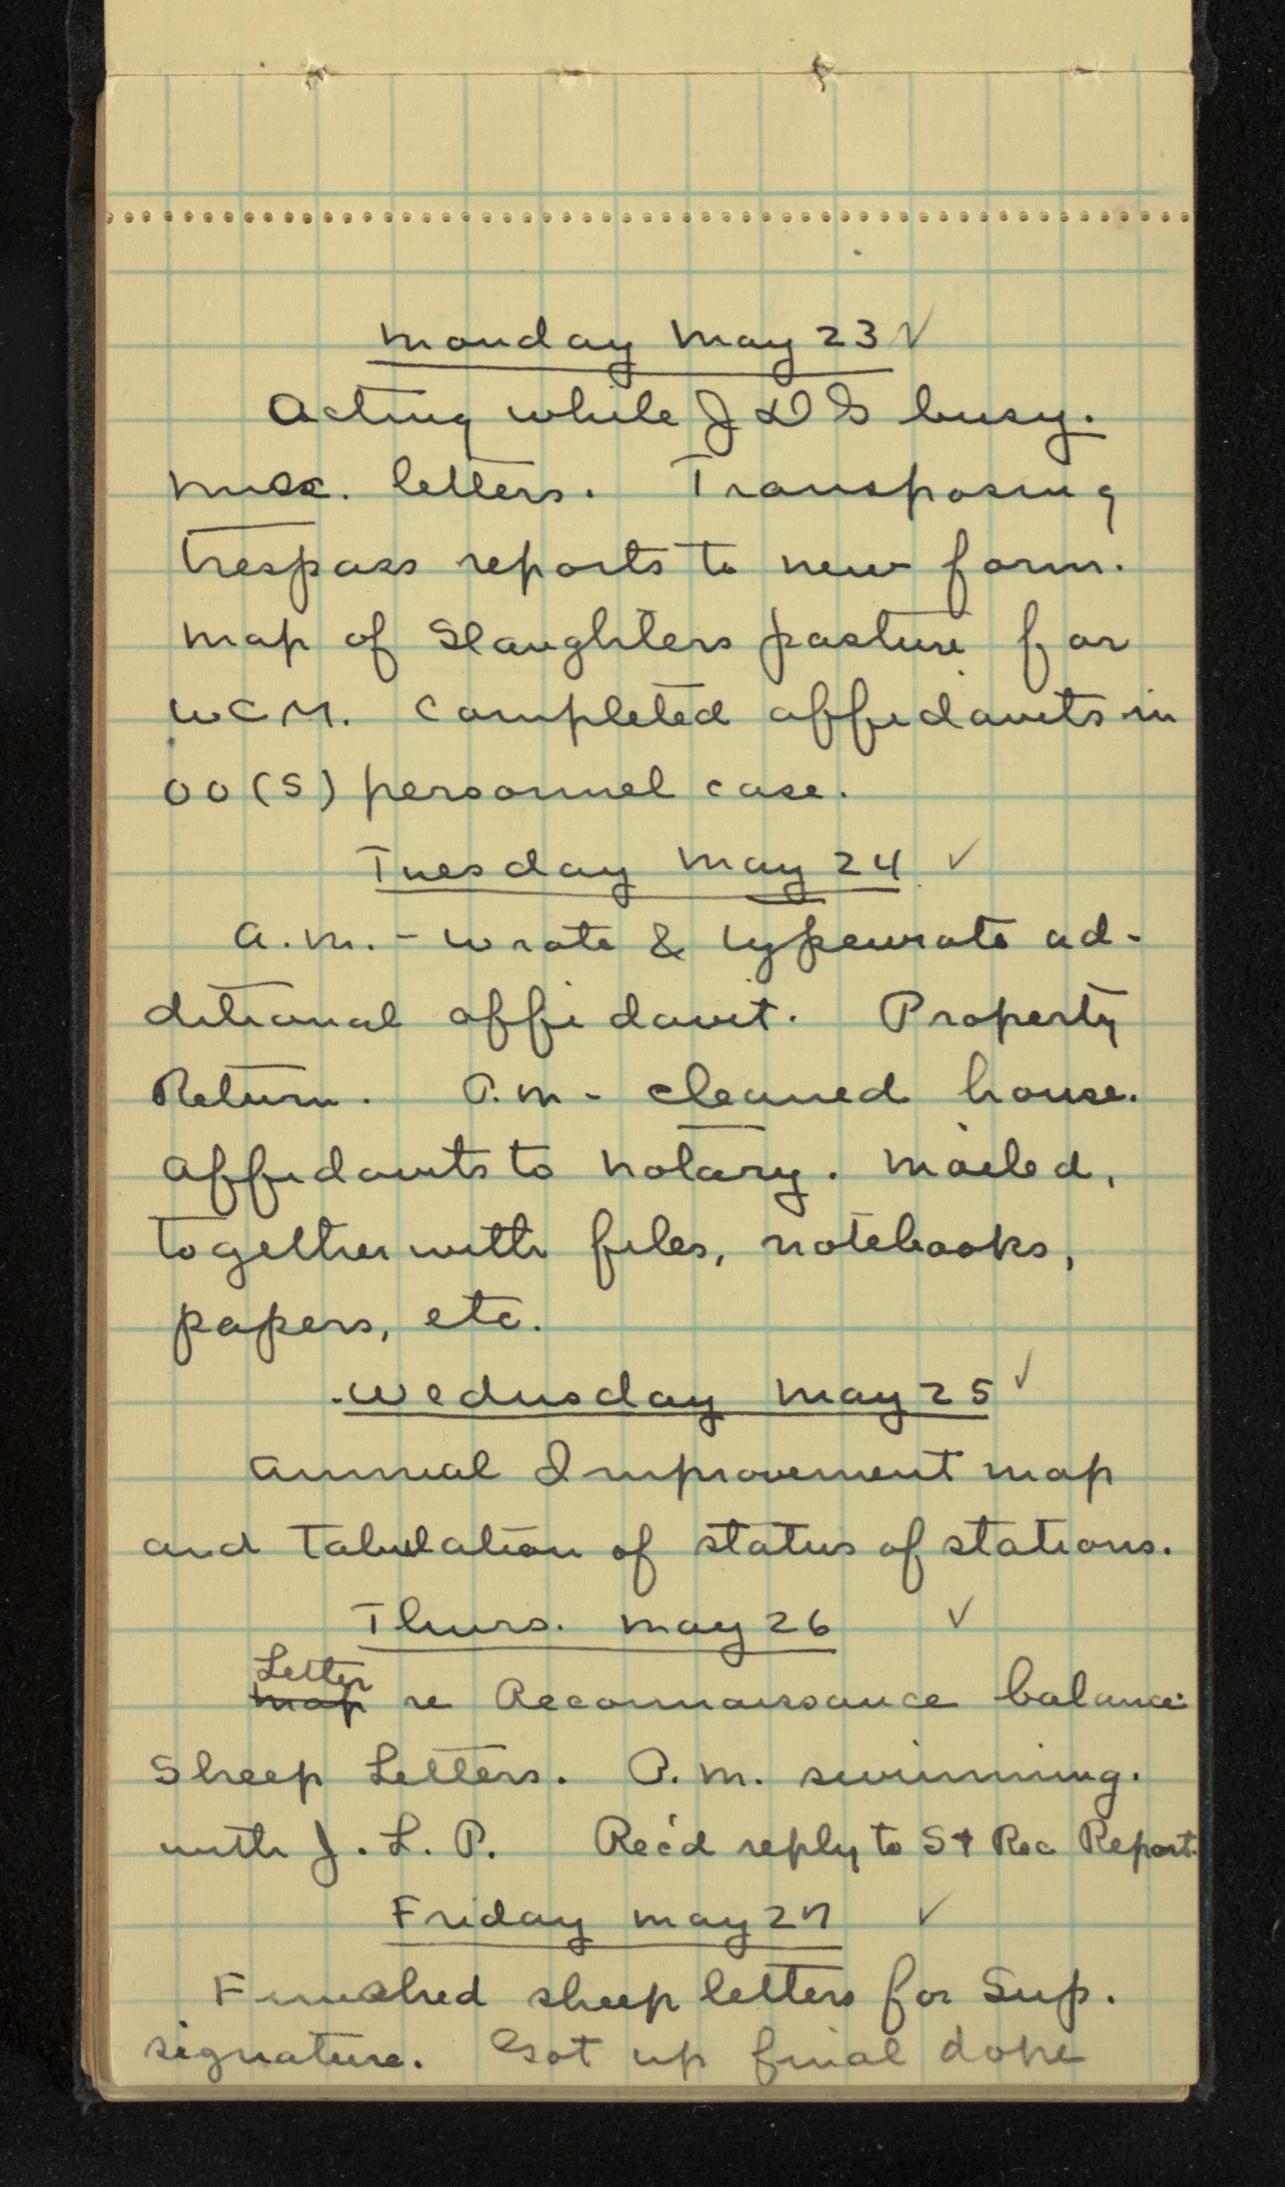 Monday May 23 ✓
Acting while J D G busy.
Misc. letters. Transposing
trespass reports to new form.
Map of Slaughters pasture for
WCM. Completed affidavits in
OO(S) personnel case.
Tuesday May 24 ✓
A.M. - Wrote & typewrote ad-
ditional affidavit. Property
Return. P.M - cleaned house.
Affidavits to notary. Mailed,
together with files, notebooks,
papers, etc.
Wednesday May 25 ✓
Annual Improvement map
and Tabulation of status of stations.
Thurs. May 26 ✓
Letter
Map re Reconnaissance balance.
Sheep Letters. P.M. swimming.
with J. L. P. Rec'd reply to St Rec Report.
Friday May 27 ✓
Finished sheep letters for Sup.
signature. Got up final dope